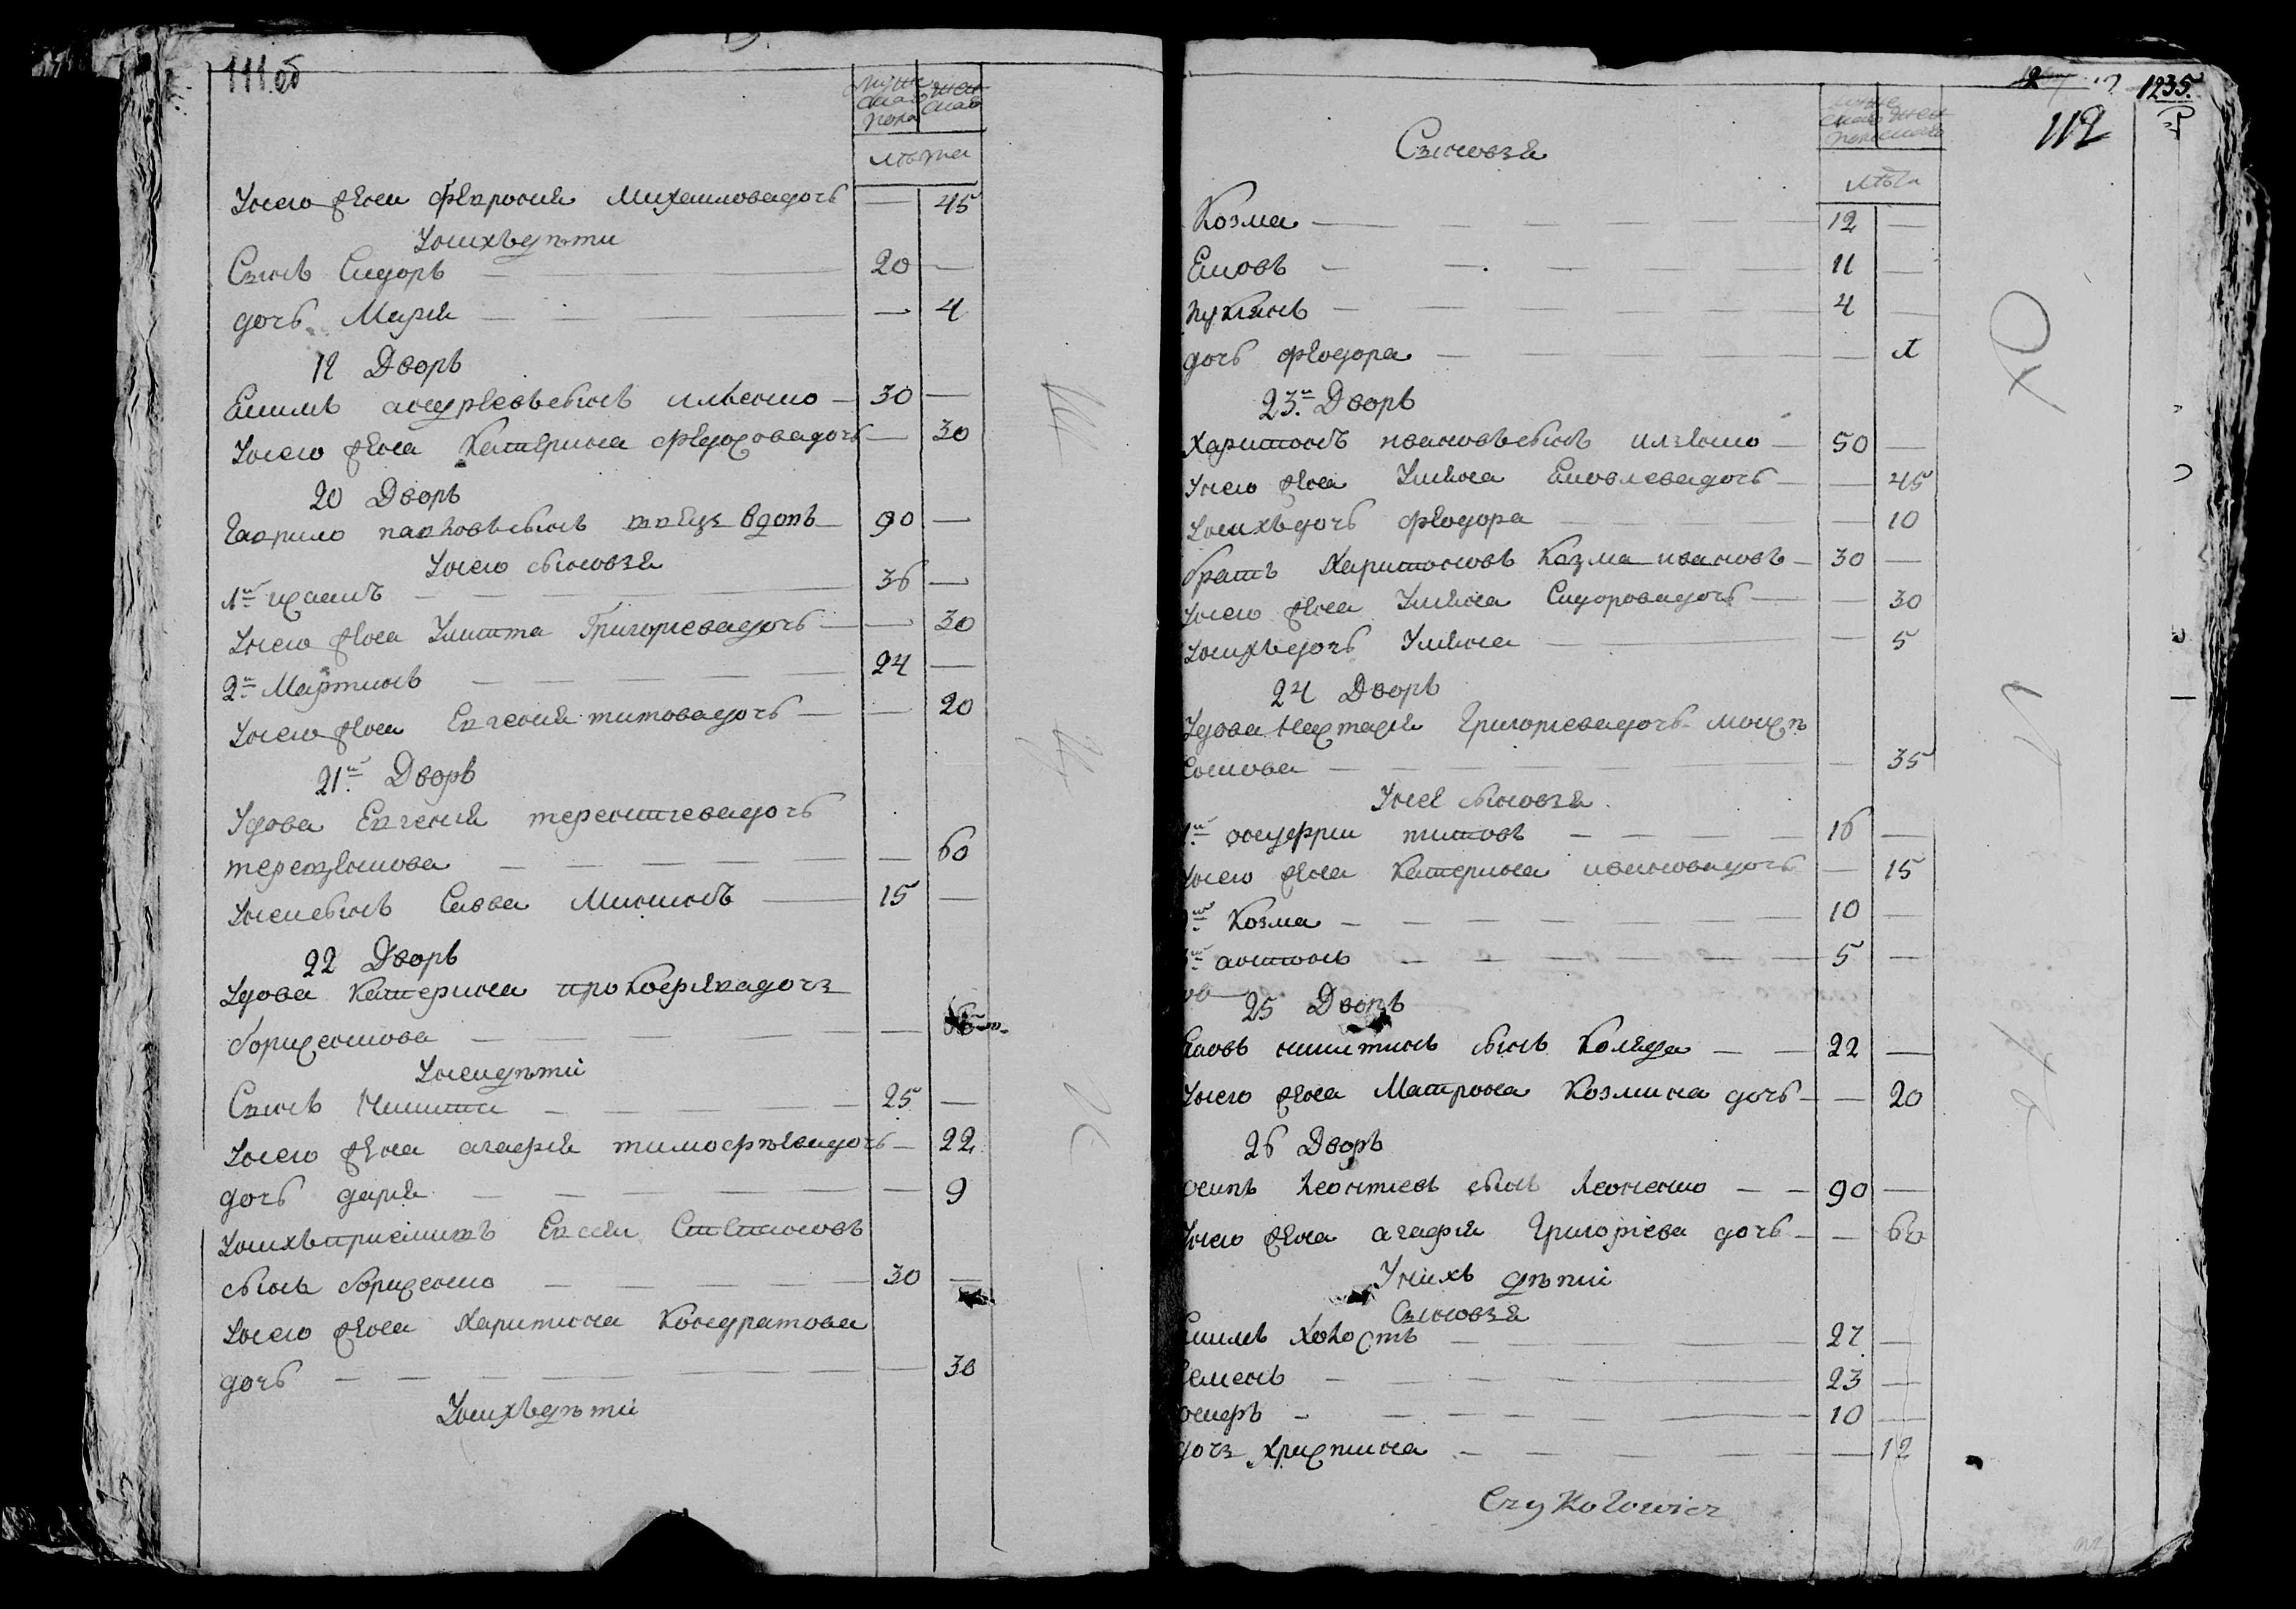 111 об
мужескаго пола
женскаго
лѣта
Унего жена Феврония Михаиловадочь — 45
Унихъдѣти
Сынъ Сидоръ — 20 —
дочь Мария — — 4
12 Дворъ
Емилъ андреевъсынъ илвенко — 30 —
Унего жена Катерина Федосовадочь — 30
20 Дворъ
Гаврило павловъсынъ вдовъ — 90 —
Унего сыновья
1й игнатъ — 36 —
Унего жена Улита Григориевадочь — — 30
2й Мартинъ — 24 —
Унего жена Евгения титовадочь — — 20
21й Дворъ
Удова Евгения терентиевадочь
— — 60
Унеисынъ Савва Мининъ — 15 —
22 Дворъ
Удова Катерина прокофиевадочь
борисенкова — —
Унеидѣти
Сынъ Никита — 25 —
Унего жена агафия тимофѣевадочь — 22
дочь дария — — 9
Унихъприймитъ Евсеи Степановъ
сынъ борисенко — 30 —
Унего жена Харитина Кондратова
дочь — — 30
Унихъдѣти
1235.
112
мужескаго пола
женскаго
лѣта
Сыновья
Козма — 12 —
Емовъ — 11 —
лукянъ — 4 —
дочь феодора — — 1
23й Дворъ
Харитонъ ивановъсынъ — 50 —
Унего жена Улияна Емовлевадочь — — 45
Унихъдочь феодора — — 10
братъ Харитоновъ Козма ивановъ — 30 —
Унего жена Улияна Сидоровадочь — — 30
Унихъдочь Улияна — — 5
24 Дворъ
Удова Настасия Григориевадочь
— — 35
Унея сыновья
1й онуфрии титовъ — 16 —
Унего жена Катерина ивановадочь — 15
2й Козма — 10 —
3й антонъ — 5 —
25 Дворъ
Емовъ никитинъ сынъ Коляда — 22 —
Унего жена Матрона Козмина дочь — — 20
26 Дворъ
осипъ леонтиевъ сынъ леоненко — 90 —
Унего жена агафия Григориева дочь — — 60
Унихъ дѣти
Сыновья
Емилъ холостъ — 27 —
Семенъ — 23 —
— 10 —
дочь христина — — 12
Czykołowicz